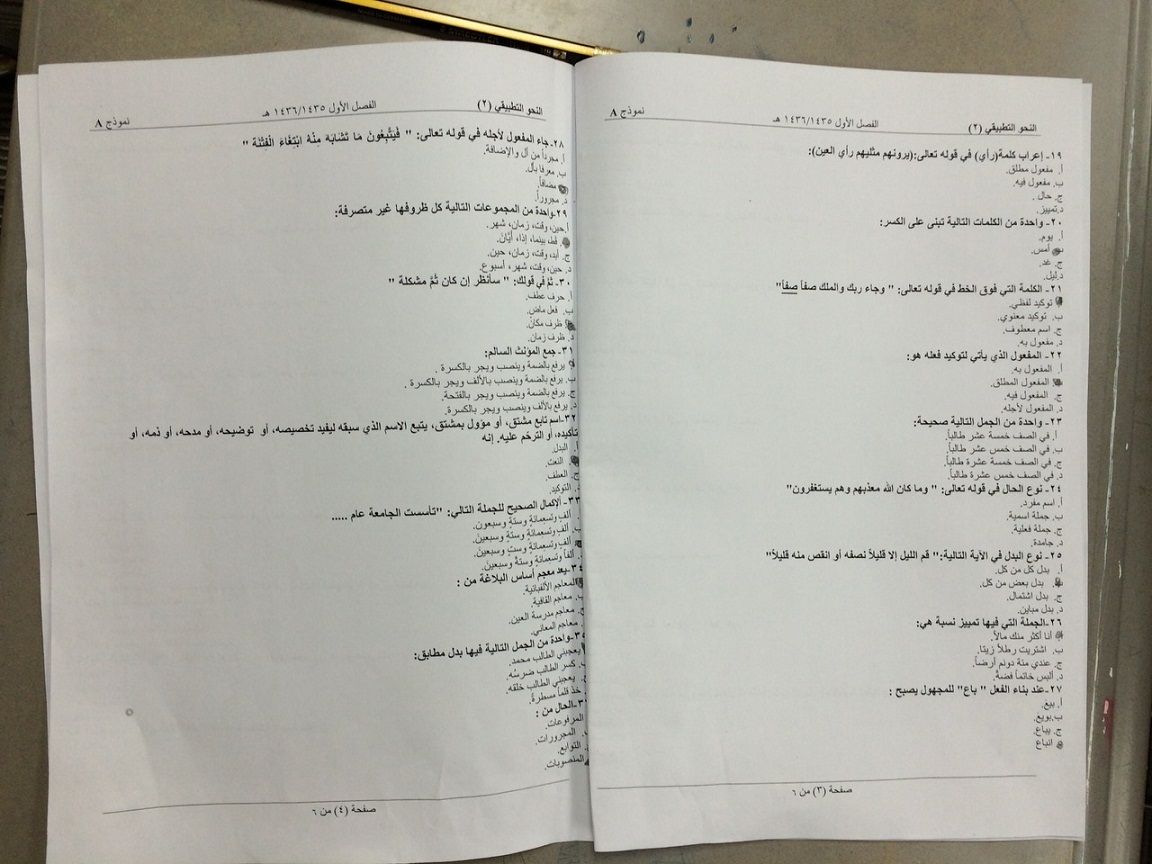 النحو التطبيقي (٢) الفصل الأول ١٤٣٦/١٤٣٥ هـ نموذج A
١٩- إعراب كلمة(رأي) في قوله تعالى:(يرونهم مثليهم رأي العين):
أ. مفعول مطلق.
ب. مفعول فيه.
ج. حال.
د.تمييز.
٢٠- واحدة من الكلمات التالية تبنى على الكسر:
أ. يوم.
ب. أمس.
ج. غد.
د. ليل.
٢١- الكلمة التي فوق الخط في قوله تعالى: " وجاء ربك والملك صفاً صفاً"
توكيد لفظي.
ب. توكيد معنوي.
ج. اسم معطوف.
د. مفعول به.
٢٢- المفعول الذي يأتي لتوكيد فعله هو:
أ. المفعول به.
المفعول المطلق.
ج. المفعول فيه.
د. المفعول لأجله.
٢٣- واحدة من الجمل التالية صحيحة:
أ. في الصف خمسة عشر طالباً.
ب. في الصف خمس عشر طالباً.
ج. في الصف خمسة عشرة طالباً.
د. في الصف خمس عشرة طالباً.
٢٤- نوع الحال في قوله تعالى: " وما كان الله معذبهم وهم يستغفرون"
أ. اسم مفرد.
ب. جملة اسمية.
ج. جملة فعلية.
د. جامدة.
٢٥- نوع البدل في الآية التالية:" قم الليل إلا قليلاً نصفه أو انقص منه قليلاً"
أ. بدل كل من كل.
بدل بعض من كل.
ج. بدل اشتمال.
د. بدل مباين.
٢٦-الجملة التي فيها تمييز نسبة هي:
أنا أكثر منك مالاً.
ب. اشتريت رطلاً زيتا.
ج. عندي مئة دونم أرضاً.
د. ألبس خاتماً فضةً.
٢٧-عند بناء الفعل " باع" للمجهول يصبح :
أ. بيع.
ب.بويع.
ج. يباع.
انباع
صفحة (٣) من ٦
النحو التطبيقي (٢) الفصل الأول ١٤٣٦/١٤٣٥ هـ نموذج A
٢٨-جاء المفعول لأجله في قوله تعالى: " فَيَتَّبِعُونَ مَا تَشَابَهَ مِنْهُ ابْتِغَاءَ الْفِتْنَة "
أ. مجرداً من أل والإضافة.
ب. معرفا بأل.
مضافاً.
د. مجروراً.
٢٩-واحدة من المجموعات التالية كل ظروفها غير متصرفة:
أ.حين، وقت، زمان، شهر.
قط، بينما، إذا، أيَّان.
ج. أبد، وقت، زمان، حين.
د. حين، وقت، شهر، أسبوع.
٣٠- ثمَّ في قولك: " سأنظر إن كان ثَمَّ مشكلة "
أ. حرف عطف.
ب. فعل ماض.
ظرف مكان.
د. ظرف زمان.
٣١- جمع المؤنث السالم:
يرفع بالضمة وينصب ويجر بالكسرة .
ب. يرفع بالضمة وينصب بالألف ويجر بالكسرة .
ج. يرفع بالضمة وينصب ويجر بالفتحة.
د. يرفع بالألف وينصب ويجر بالكسرة.
٣٢-اسم تابع مشتق، أو مؤول بمشتق، يتبع الاسم الذي سبقه ليفيد تخصيصه، أو توضيحه، أو مدحه، أو ذمه، أو
تأكيده، أو الترحّم عليه. إنه
أ. البدل.
النعت.
ج. العطف.
التوكيد.
٣٣- الإكمال الصحيح للجملة التالي: "تأسست الجامعة عام .....
ألف وتسعمائةٍ وستةٍ وسبعون.
ألف وتسعمائةٍ وستةٍ وسبعين.
ألف وتسعمائةٍ وستٍ وسبعين.
ألفاً وتسعمائةٍ وستةً وسبعين.
يعد معجم أساس البلاغة من :
المعاجم الألفبائية.
معاجم القافية.
معاجم مدرسة العين.
معاجم المعاني.
واحدة من الجمل التالية فيها بدل مطابق:
يعجبني الطالب محمد.
كسر الطالب ضرسُه.
يعجبني الطالب خلقه.
خذ قلماً مسطرةً.
الحال من :
المرفوعات.
المجرورات.
التوابع.
المنصوبات.
صفحة (٤) من ٦